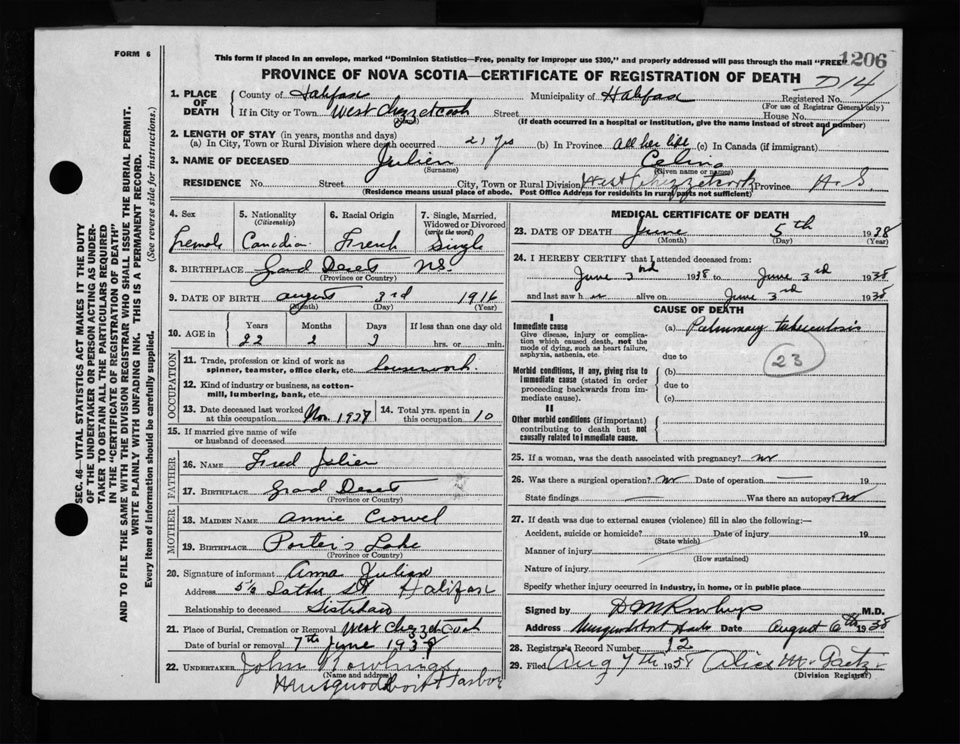 FORM 6
This form if placed in an envelope, marked "Dominion Statistics—Free, penalty for improper use $300," and properly addressed will pass through the mail "FREE"
1206
PROVINCE OF NOVA SCOTIA—CERTIFICATE OF REGISTRATION OF DEATH
D14
1. PLACE OF DEATH
County of Halifax Municipality of Halifax Registered No.
(For use of Registrar General only)
If in City or Town West Chezzetcook Street House No.
(If death occurred in a hospital or institution, give the name instead of street and number)
2. LENGTH OF STAY (in years, months and days)
(a) In City, Town or Rural Division where death occurred 21 yrs (b) In Province All her life (c) In Canada (if immigrant)
3. NAME OF DECEASED Julien Celina
(Surname) (Given name or names)
RESIDENCE No. Street City, Town or Rural Division West Chezzetcook Province N.S.
(Residence means usual place of abode. Post Office Address for residents in rural parts not sufficient)
4. Sex
Female
5. Nationality
(Citizenship)
Canadian
6. Racial Origin
French
7. Single, Married, Widowed or Divorced
(write the word)
Single
8. BIRTHPLACE Grand Desert N.S.
(Province or Country)
9. DATE OF BIRTH August 3rd 1916
(Month) (Day) (Year)
10. AGE in Years Months Days If less than one day old
22 2 3 hrs. or min.
OCCUPATION
11. Trade, profession or kind of work as spinner, teamster, office clerk, etc. housework
12. Kind of industry or business, as cotton-mill, lumbering, bank, etc.
13. Date deceased last worked at this occupation Nov. 1937
14. Total yrs. spent in this occupation 10
15. If married give name of wife or husband of deceased
FATHER
16. NAME Fred Julien
17. BIRTHPLACE Grand Desert
(Province or Country)
MOTHER
18. MAIDEN NAME Annie Crowel
19. BIRTHPLACE Porter's Lake
(Province or Country)
20. Signature of informant Anna Julien
Address St Halifax
Relationship to deceased
21. Place of Burial, Cremation or Removal West Chezzetcook
Date of burial or removal 7th June 1938
22. UNDERTAKER John Rowlings
(Name and address)
Musquodoboit Harbor
MEDICAL CERTIFICATE OF DEATH
23. DATE OF DEATH June 5th 1938
(Month) (Day) (Year)
24. I HEREBY CERTIFY that I attended deceased from:
June 3rd 1938 to June 3rd 1938
and last saw her alive on June 3rd 1938
CAUSE OF DEATH
I
Immediate cause
Give disease, injury or complication which caused death, not the mode of dying, such as heart failure, asphyxia, asthenia, etc.
(a) Pulmonary tuberculosis
due to
23
Morbid conditions, if any, giving rise to immediate cause (stated in order proceeding backwards from immediate cause).
(b)
due to
(c)
II
Other morbid conditions (if important) contributing to death but not causally related to immediate cause.
25. If a woman, was the death associated with pregnancy? no
26. Was there a surgical operation? no Date of operation — 19
State findings — Was there an autopsy? no
27. If death was due to external causes (violence) fill in also the following:—
Accident, suicide or homicide? Date of injury 19
(State which)
Manner of injury
(How sustained)
Nature of injury
Specify whether injury occurred in industry, in home, or in public place
Signed by D M Rowlings M.D.
Address Musquodoboit Harb Date August 6th 1938
28. Registrar's Record Number 12
29. Filed Aug 7th 1938 Alice M. Gaetz
(Division Registrar)
SEC. 46—VITAL STATISTICS ACT MAKES IT THE DUTY
OF THE UNDERTAKER OR PERSON ACTING AS UNDER-
TAKER TO OBTAIN ALL THE PARTICULARS REQUIRED
IN THE "CERTIFICATE OF REGISTRATION OF DEATH"
AND TO FILE THE SAME WITH THE DIVISION REGISTRAR WHO SHALL ISSUE THE BURIAL PERMIT.
WRITE PLAINLY WITH UNFADING INK. THIS IS A PERMANENT RECORD.
Every item of information should be carefully supplied. (See reverse side for instructions.)